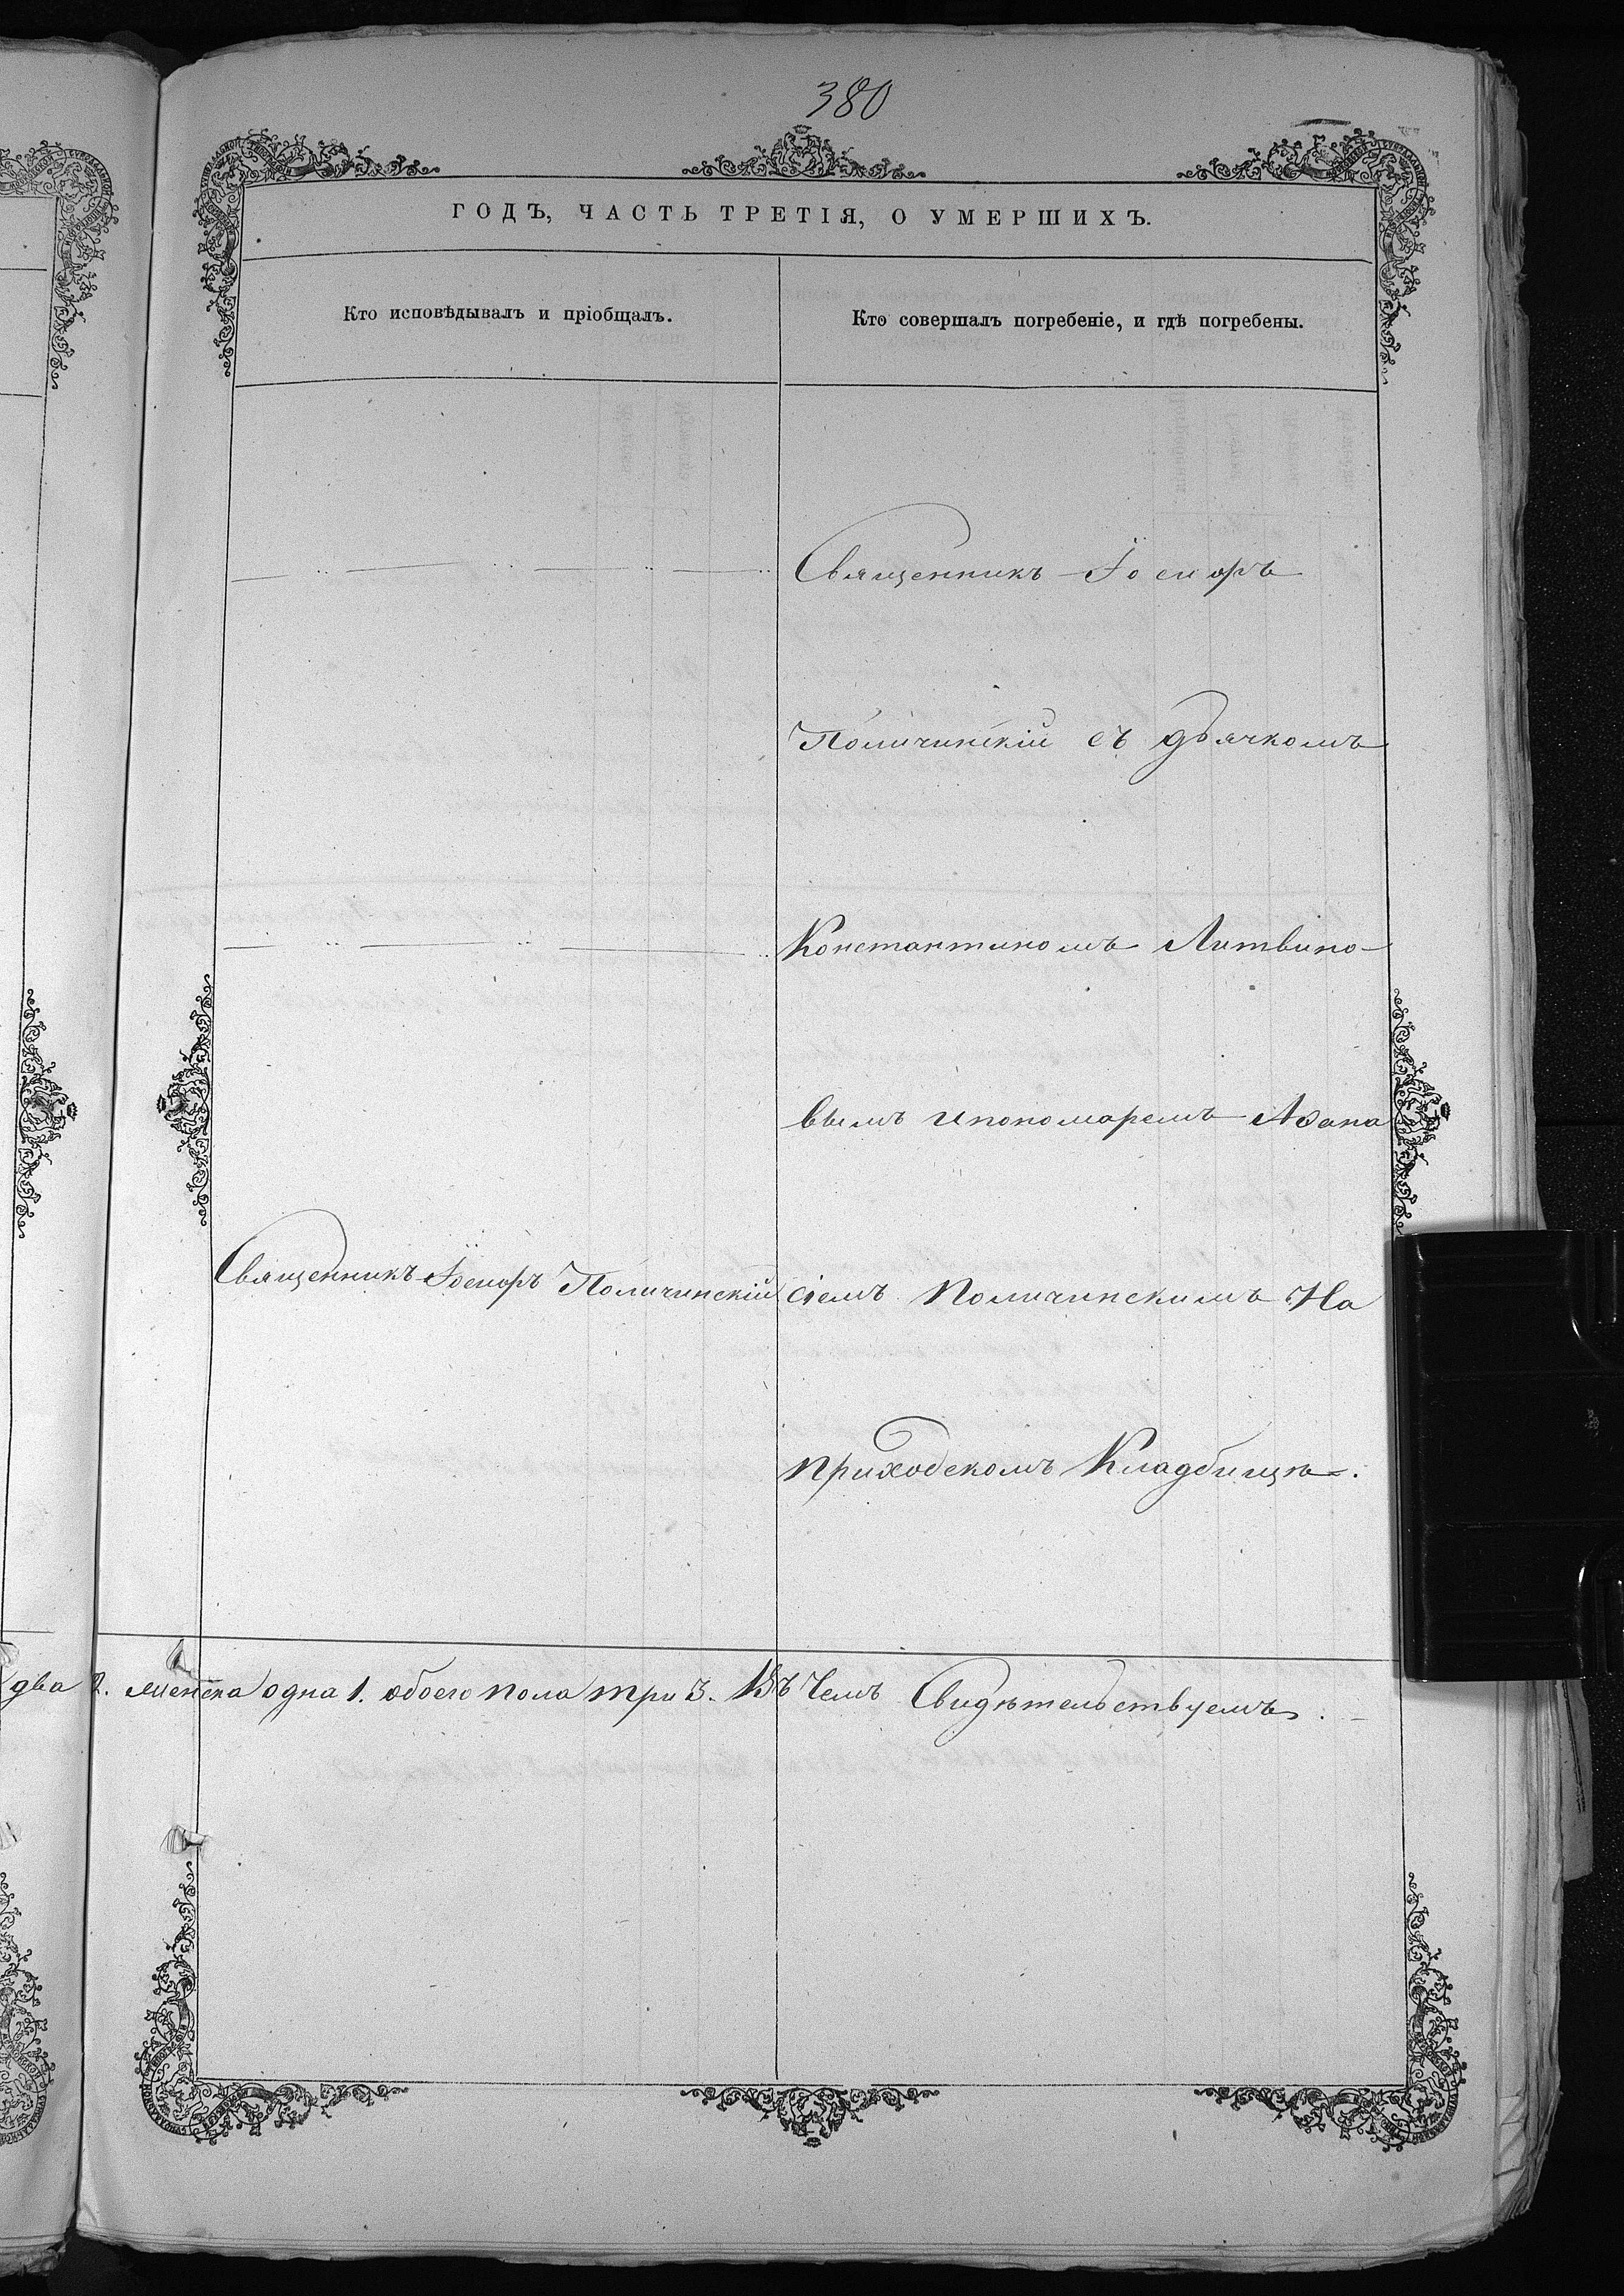 380
ГОДЪ, ЧАСТЬ ТРЕТІЯ, О УМЕРШИХЪ.
Кто исповѣдывалъ и пріобщалъ.
Кто совершалъ погребеніе, и гдѣ погребены.
Священникъ Іосифъ
Поличинскій съ дьячкомъ
Константиномъ Литвино-
вымъ и пономаремъ Аѳана
Священникъ Іосифъ Поличинскій
сіемъ Поличинскимъ На
приходскомъ Кладбищѣ.
два 2. женска одна 1. обоего пола три 3. Въ Чемъ Свидѣтельствуемъ.